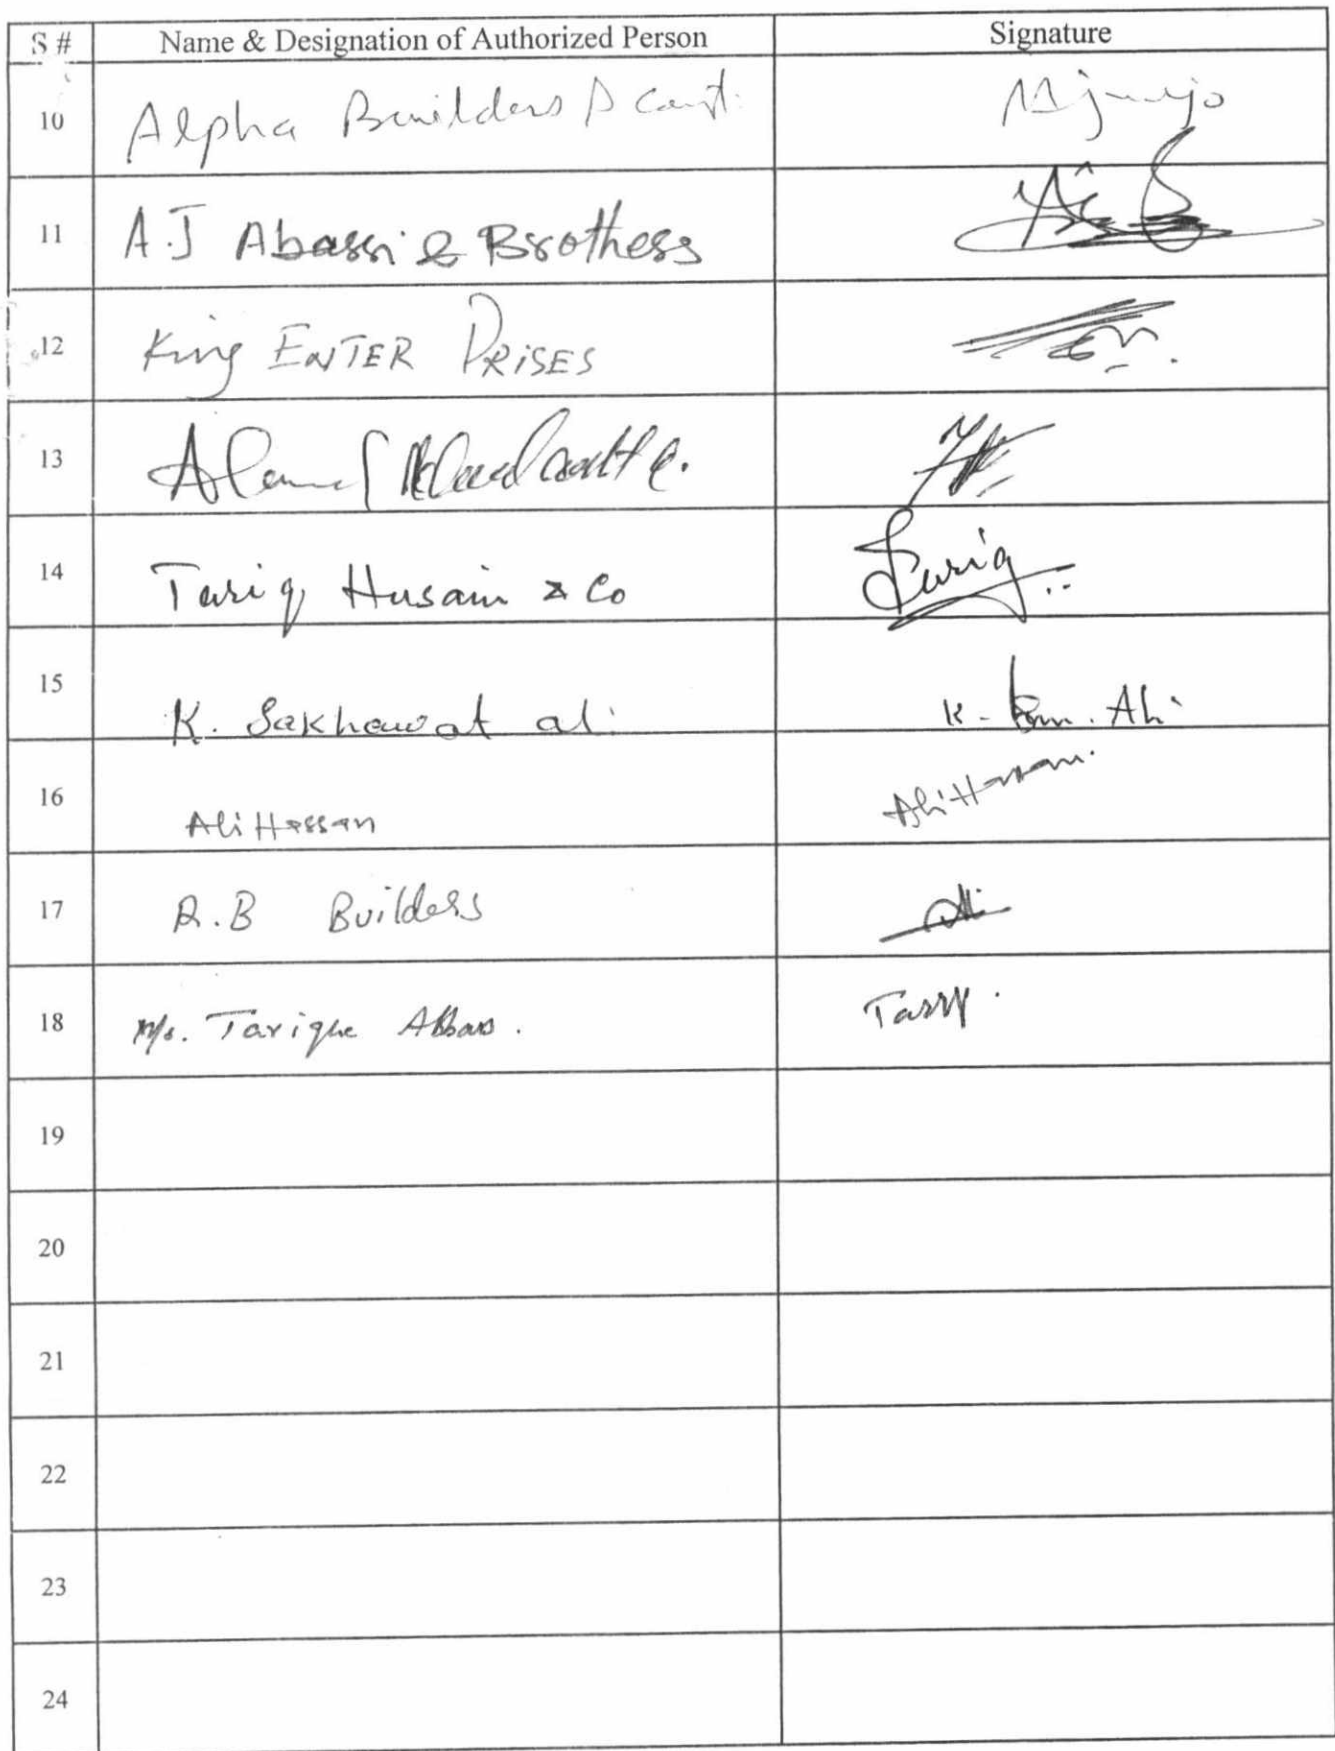 S # Name & Designation of Authorized Person Signature
10 Alpha Builders
11 A.J Abassi & Brothers
12 King ENTER PRISES
13
14 Tariq Husain & Co Tariq
15 K. Sakhawat ali K. Ali
16 Ali Hassan Ali Hassan
17 R.B Builders
18 M/s. Tarique Abbas.
19
20
21
22
23
24